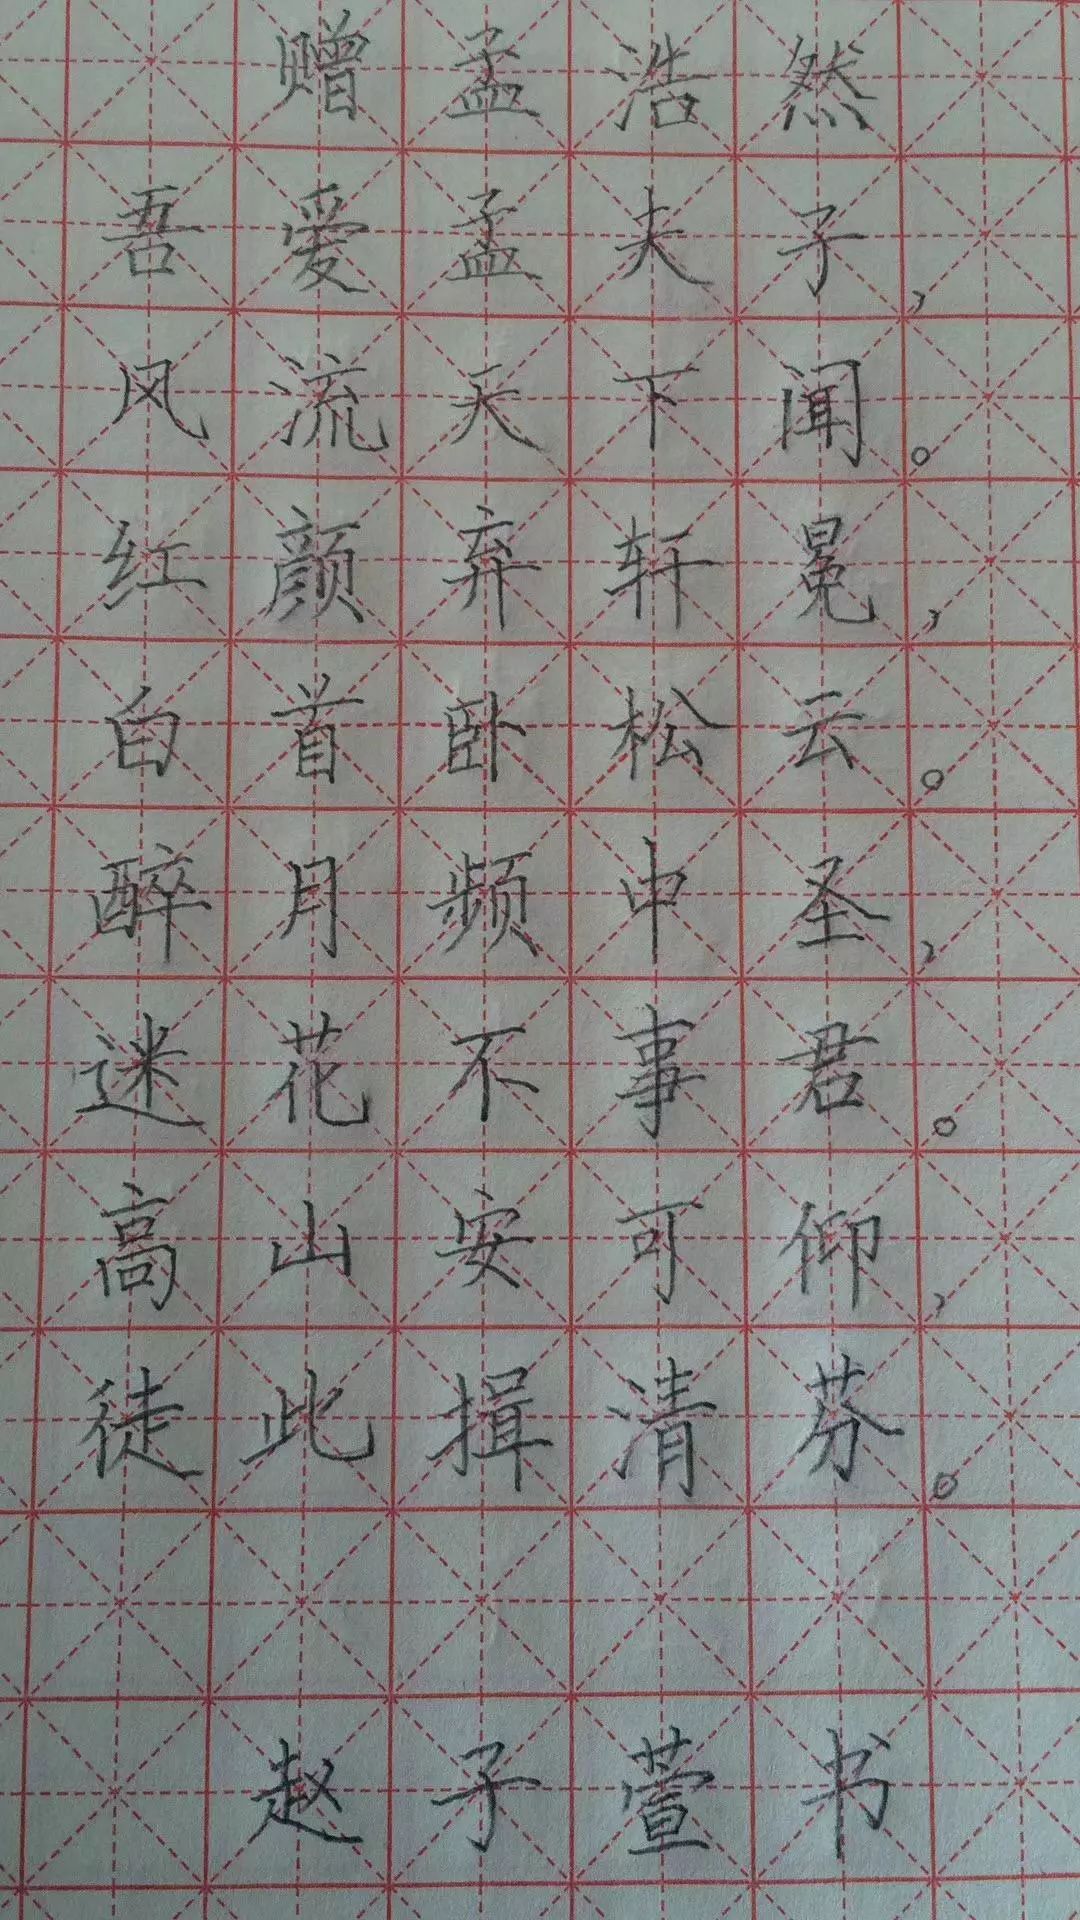 赠孟浩然
吾爱孟夫子，
风流天下闻。
红颜弃轩冕，
白首卧松云。
醉月频中圣，
迷花不事君。
高山安可仰，
徒此揖清芬。
赵子萱书